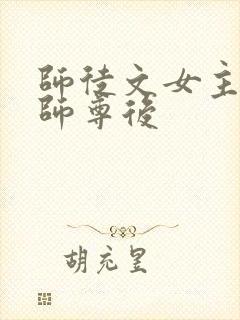 師徒文女主
師尊後
胡充星